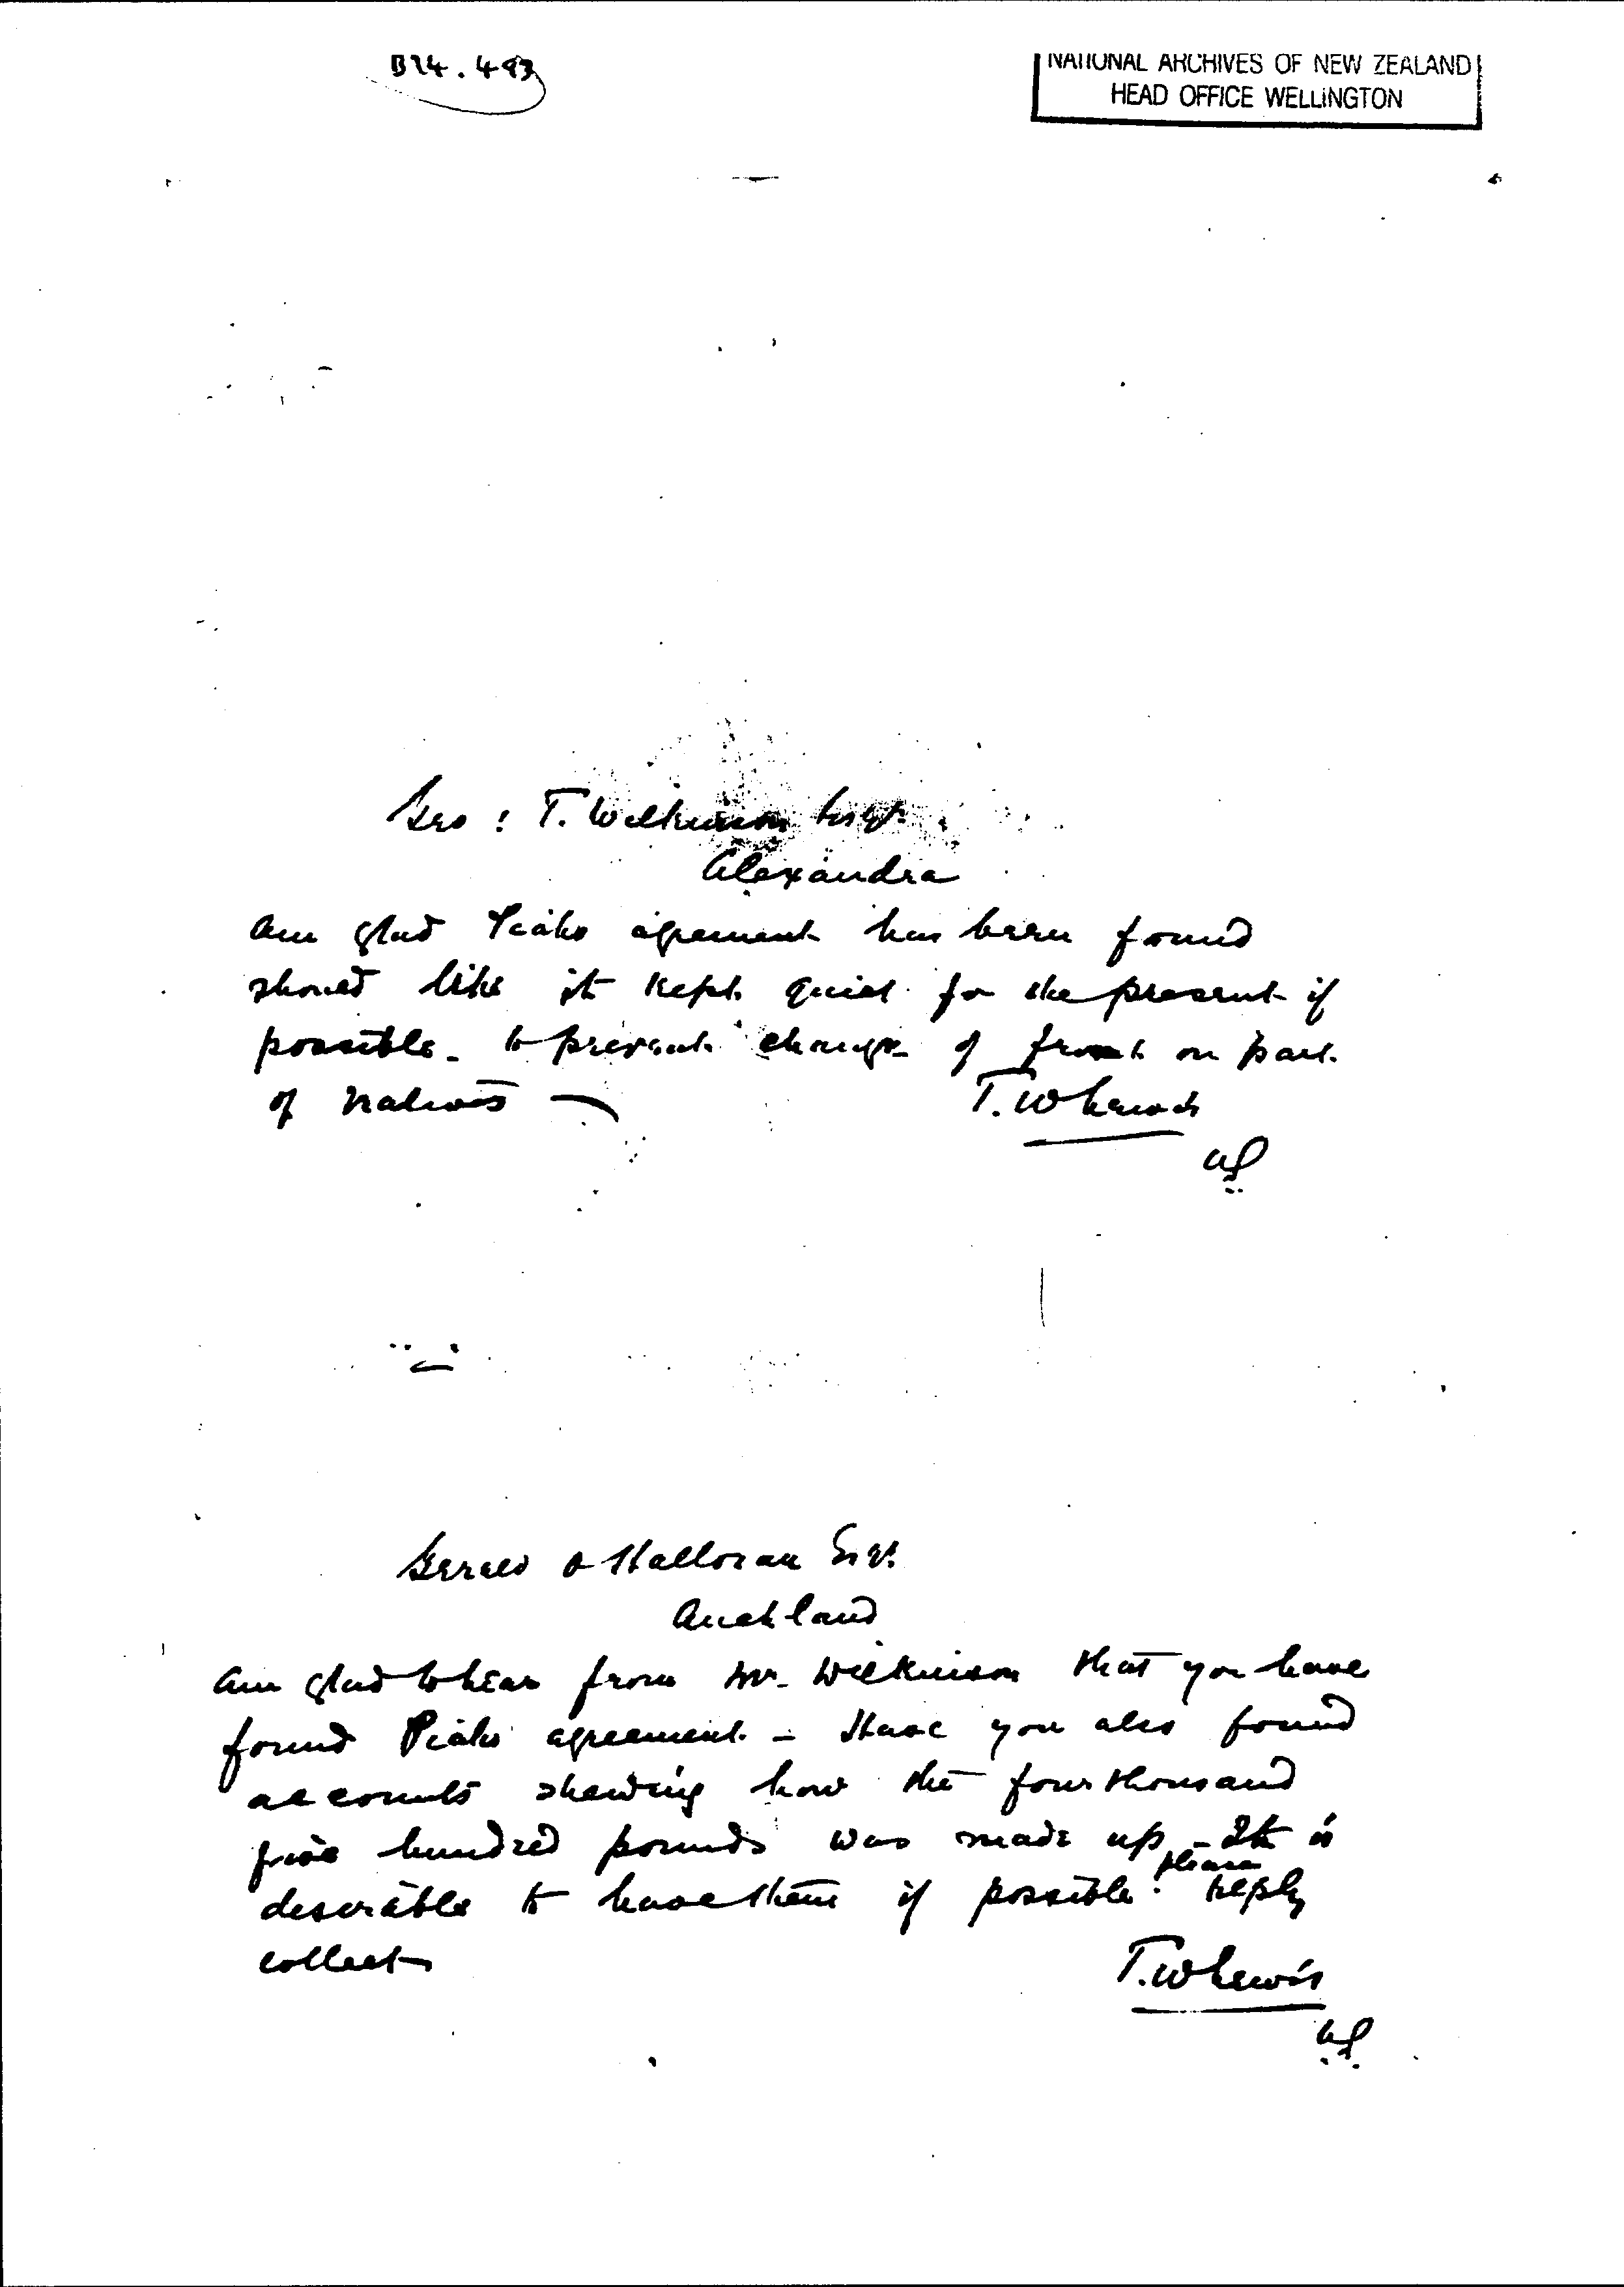 B24.493
NATIONAL ARCHIVES OF NEW ZEALAND
HEAD OFFICE WELLINGTON
Geo: T. Wilkinson Esqr.
Alexandra
am glad Piako agreement has been found
should like it kept quiet for the present if
possible - to prevent change of front on part
of natives
T. W Lewis
US
Gerald O Halloran Esqr.
Auckland
am glad to hear from Mr. Wilkinson that you have
found Piako agreement - Have you also found
accounts shewing how the four thousand
five hundred pounds was made up - It is
desirable to have them if possible. please reply
collect
T. W Lewis
U.S.